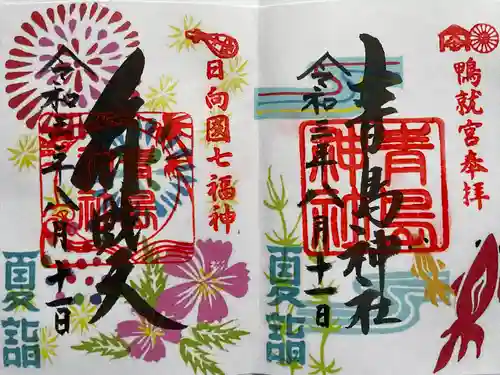 鴨就宮奉拝
青島神社
青島
神社
令和三年八月十一日
夏詣
日向國七福神
弁財天
令和三年八月十一日
夏詣